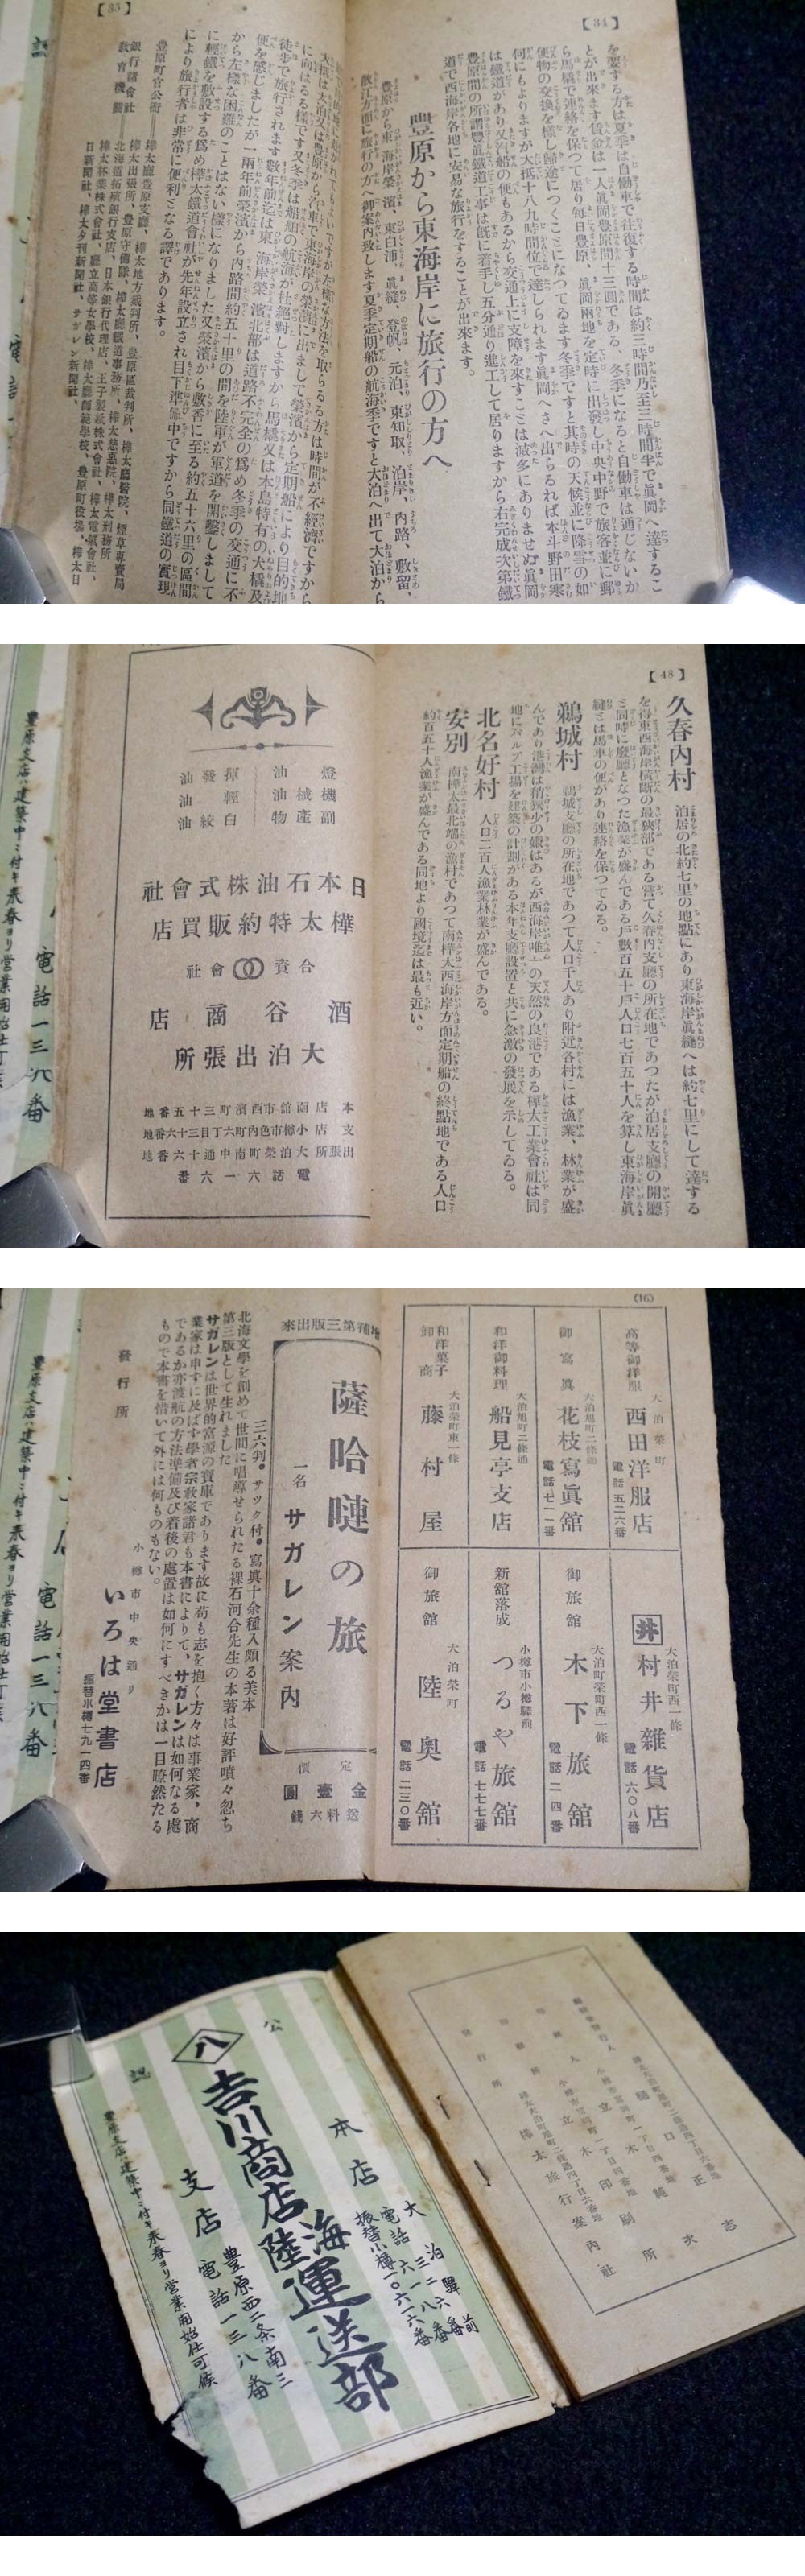 【34】
を要する方は夏季は自働車で往復する時間は約三時間乃至三時間半で眞岡へ達するこ
とが出來ます賃金は一人眞岡豊原間十三圓である、冬季になると自働車は通じないか
ら馬橇で連絡を保つて居り毎日豊原、眞岡兩地を定時に出發し中央中野で旅客並に郵
便物の交換を樣し歸途につくことになつてゐます冬季ですと其時の天候並に降雪の如
何にもよりますが大抵十八九時間位で達しられます眞岡へさへ出らるれば本斗野田寒
は鐵道があり又汽船の便もあるから交通上に支障を來すことは滅多にありませぬ眞岡
豊原間の所謂豊眞鐵道工事は既に着手し五分通り進工して居りますから右完成次第鐵
道で西海岸各地に安易な旅行をすることが出來ます。
豊原から東海岸に旅行の方へ
豊原から東海岸榮濱、東白浦、眞縫、登帆、元泊、東知取、泊岸、內路、敷留、
敷江方面に旅行の方へ御案内致します夏季定期船の航海季ですと大泊へ出て大泊から
【35】
大抵は大泊又は豊原から汽車で東海岸の榮濱に出まして榮濱から定期船により目的地
に向はるる樣です又冬季は船舶の航海が杜絕對しますから馬橇又は本島特有の犬橇及
徒步で旅行されます數年前迄は東海岸榮濱北部は道路不完全の爲め冬季の交通に不
便を感じましたが一兩年前榮濱から內路間約五十里の間を陸軍が軍道を開鑿しまして
から左樣な困難のことはない樣になりました又榮濱から敷香に至る約五十六里の區間
に輕鐵を敷設する爲め樺太鐵道會社が先年設立され目下準備中ですから同鐵道の實現
により旅行者は非常に便利となる譯であります。
豊原町官公衙
樺太廳豊原支廳、樺太地方裁判所、豊原區裁判所、樺太廳醫院、煙草專賣局
樺太出張所、豊原守備隊、樺太廳鐵道事務所、樺太慈惠院、樺太刑務所
銀行諸會社
北海道拓殖銀行支店、日本銀行代理店、王子製紙株式會社、樺太電氣會社、
樺太林業株式會社、廳立高等女學校、樺太廳師範學校、豊原町役場、樺太日
教育機關
日新聞社、樺太夕刊新聞社、サガレン新聞社、
【48】
久春內村
泊居の北約七里の地點にあり東海岸眞縫へは約七里にして達する
を得東西海岸橫斷の最狹部である嘗て久春內支廳の所在地であつたが泊居支廳の開廳
と同時に廢廳となつた漁業が盛んである戶數百五十戶人口七百五十人を算し東海岸眞
縫とは馬車の便があり連絡を保つてゐる。
鵜城村
鵜城支廳の所在地であつて人口千人あり附近各村には漁業、林業が盛
んであり港灣は稍狹少の嫌はあるが西海岸唯一の天然の良港である樺太工業會社は同
地にパルプ工場を建築の計劃がある本年支廳設置と共に急激の發展を示してゐる。
北名好村
人口二百人漁業林業が盛んである。
安別
南樺太最北端の漁村であつて南樺太西海岸方面定期船の終點地である人口
約百五十人漁業が盛んである同地より國境迄は最も近い。
燈油
機械油
副產物
揮發油
輕油
白絞油
日本石油株式會社
樺太特約販買店
合資會社
酒谷商店
大泊出張所
本店函館市西濱町三十五番地
支店小樽市色內町六丁目三十六番地
出張所大泊榮町南中通十六番地
電話六一六番
豊原支店ハ建築中ニ付キ來春ヨリ營業開始仕可候
電話一三八番
(16)
高等御洋服
大泊榮町
西田洋服店
電話五二六番
御寫眞
大泊旭町二條通
花枝寫眞館
電話七一一番
和洋御料理
大泊旭町二條通
船見亭支店
和洋菓子
卸商
大泊榮町東一條
藤村屋
井
大泊町榮町西一條
村井雜貨店
電話六〇八番
御旅館
大泊町榮町西一條
木下旅舘
電話二四番
新舘落成
小樽市小樽驛前
つるや旅舘
電話七七七番
御旅館
大泊榮町
陸奧舘
電話二三〇番
增補第三版出來
薩哈嗹の旅
一名サガレン案內
定價
金壹圓
送料六錢
三六判。サック付。寫眞十余種入頗る美本
北海文學を創めて世間に唱導せられたる裸石河合先生の本著は好評嘖々忽ち
第三版として生れました
サガレンは世界的富源の寶庫であります故に苟も志を抱く方々は事業家，商
業家は申すに及ばず學者宗敎家諸君も本書によりて，サガレンは如何なる處
であるか亦渡航の方法準備及び着後の處置は如何にすべきかは一目瞭然たる
もので本書を惜いて外には何ものもない。
發行所
小樽市中央通り
いろは堂書店
振替小樽七九一四番
豊原支店ハ建築中ニ付キ來春ヨリ營業開始仕丁候
電話一三八番
樺太大泊町旭町二條通四丁目六番地
編輯兼發行人
樋口正志
小樽市富岡町一丁目四番地
印刷人
立木純次
小樽市富岡町一丁目四番地
印刷所
立木印刷所
樺太大泊町旭町二條通四丁目六番地
發行所
樺太旅行案內社
公認
八
吉川商店海陸運送部
本店
大泊驛前
電話三二六番
六一八番
振替小樽一〇六一六番
支店
豊原西二条南三
電話一三八番
豊原支店ハ建築中ニ付キ來春ヨリ営業開始仕可候